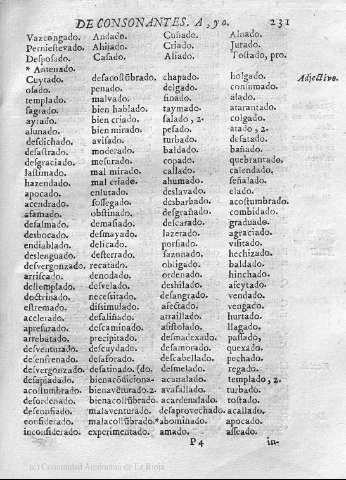 DE CONSONANTES. A, yo. 231
Vazcongado. Andado. Cuñado. Alnado.
Perniestevado. Ahijado. Criado. Jurado.
Desposado. Casado. Aliado. Tostado, pro.
* Antenado.
Cuytado. desacostũbrado, chapado. holgado. Adjectivo.
osado. penado. delgado. consumado.
templado. malvado. finado. alado.
sagrado. bien hablado. taymado. atarantado.
ayrado. bien criado. salado, 2. colgado.
alunado. bien mirado. pesado. atado, 2.
desdichado. avisado. turbado. desatado.
desastrado. moderado. baldado. bañado.
desgraciado. mesurado. copado. quebrantado.
lastimado. mal mirado. callado. calendado.
hazendado. mal criado. ahumado. señalado.
apocado. enlutado. deslavado. elado.
acendrado. sossegado. desbarbado. acostumbrado.
afamado. obstinado. desgrañado. combidado.
desalmado. demasiado. descarado. graduado.
desbocado. desmayado. lazerado. agraciado.
endiablado. delicado. porfiado. visitado.
deslenguado. desterrado. sazonado. hechizado.
desvergonzado. recatado. obligado. baldado.
arriscado. denodado. ordenado. hinchado.
destemplado. desvelado. deshilado. aleytado.
doctrinado. necessitado. desangrado. vendado.
estremado. dissimulado. afectado. vengado.
acelerado. desaliñado. arraillado. hurtado.
apresurado. descaminado. afistolado. llagado,
arrebatado. precipitado. desmadexado. passado,
desventurado. descuydado. desamorado. quexado.
desenfrenado. desaforado. descabellado. pechado.
desvergonzado. desatinado. (do. desmelado. regado.
desapiadado. bienacõdiciona- acanalado. templado, 2.
acostumbrado. bienaventurado. 2. avasallado. turbado.
desordenado. bienacostũbrado. acardenalado. tostado.
desconfiado. malaventurado. desaprovechado. acallado.
considerado. malacostũbrado. *abominado. apocado.
inconsiderado. experimentado. amado. asseado.
P 4 in-
(c) Comunidad Autónoma de La Rioja